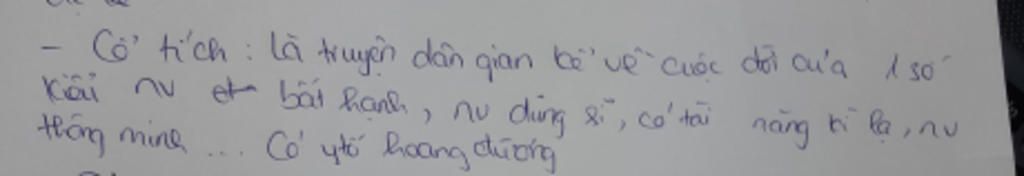 - Cổ tích : Là truyện dân gian kể về cuộc đời của 1 số
kiểu nv bất hạnh, nv dũng sĩ, có tài năng kì lạ, nv
thông minh ... Có ytố hoang đường